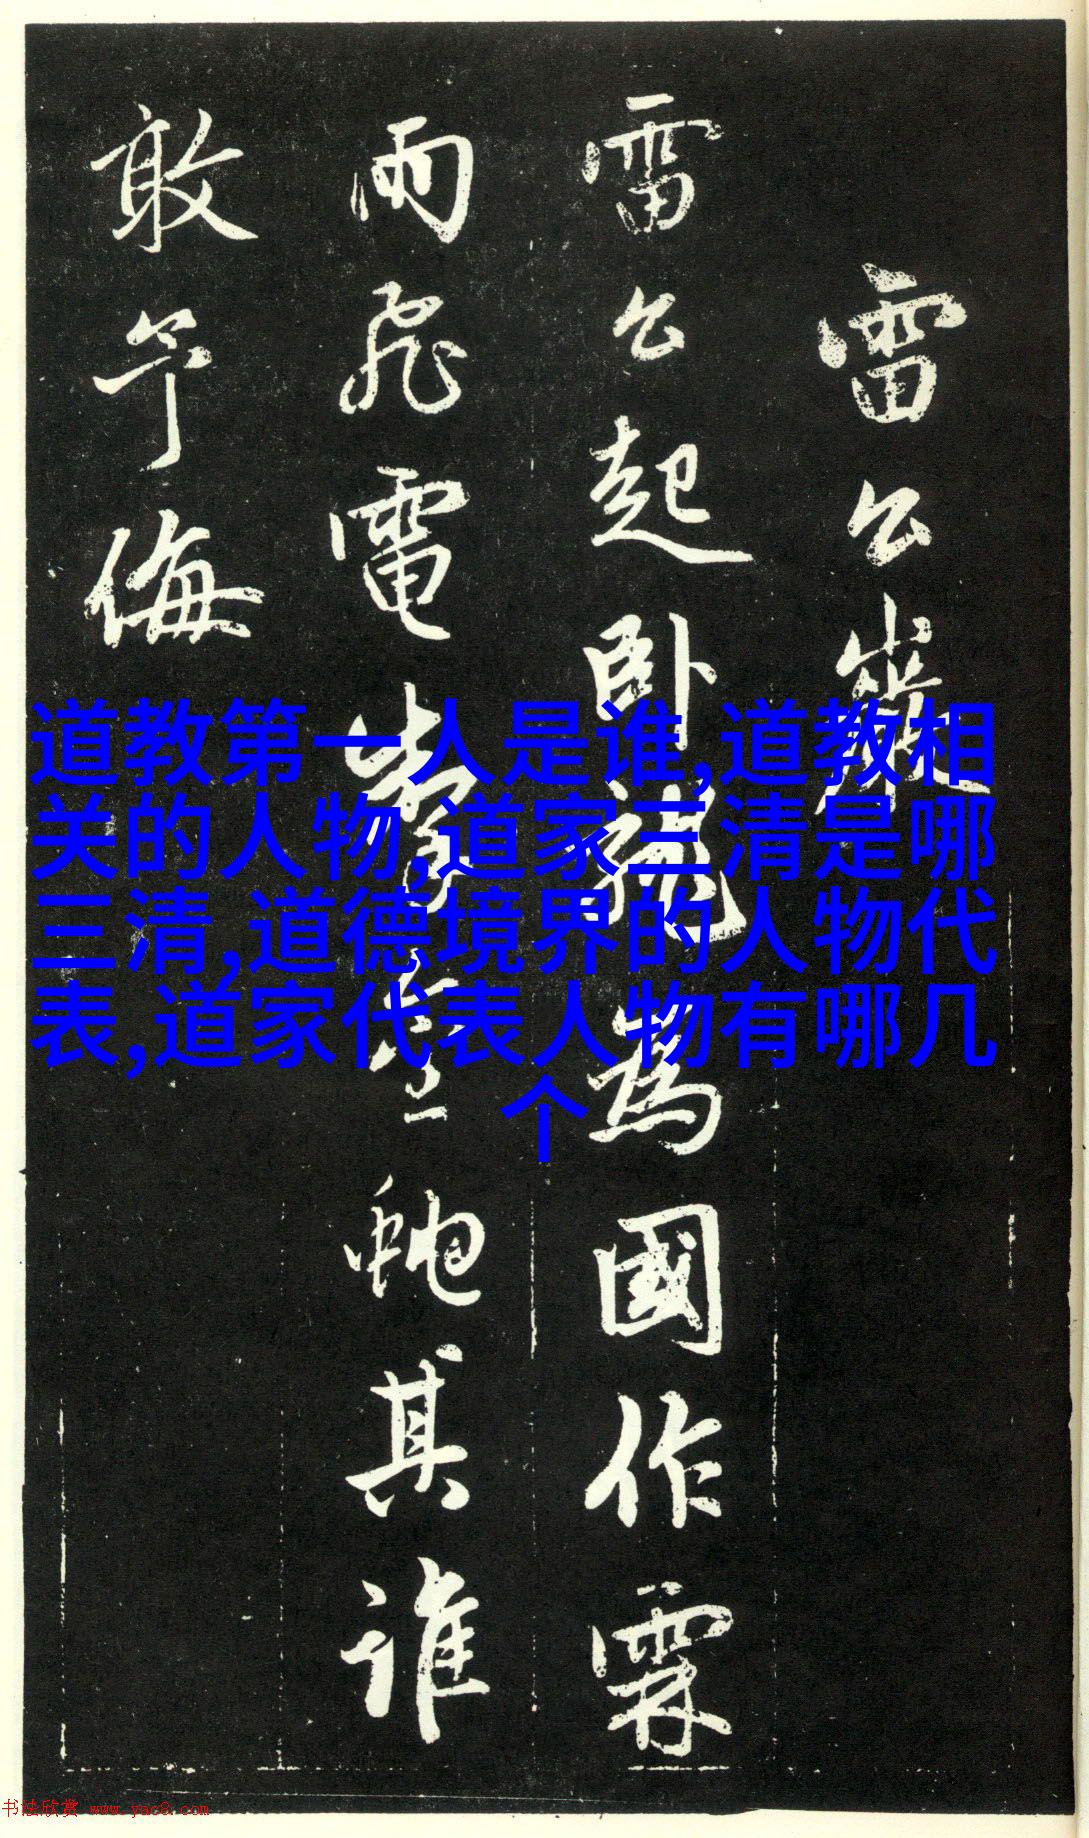 雷公嶷
雷公起卧龍為國作霖
雨飛電掌金蛇其誰
敢乍侮
道教第一人是谁,道教相
关的人物,道家三清是哪
三清,道德境界的人物代
表,道家代表人物有哪几
个
书法欣赏 www.yac8.com